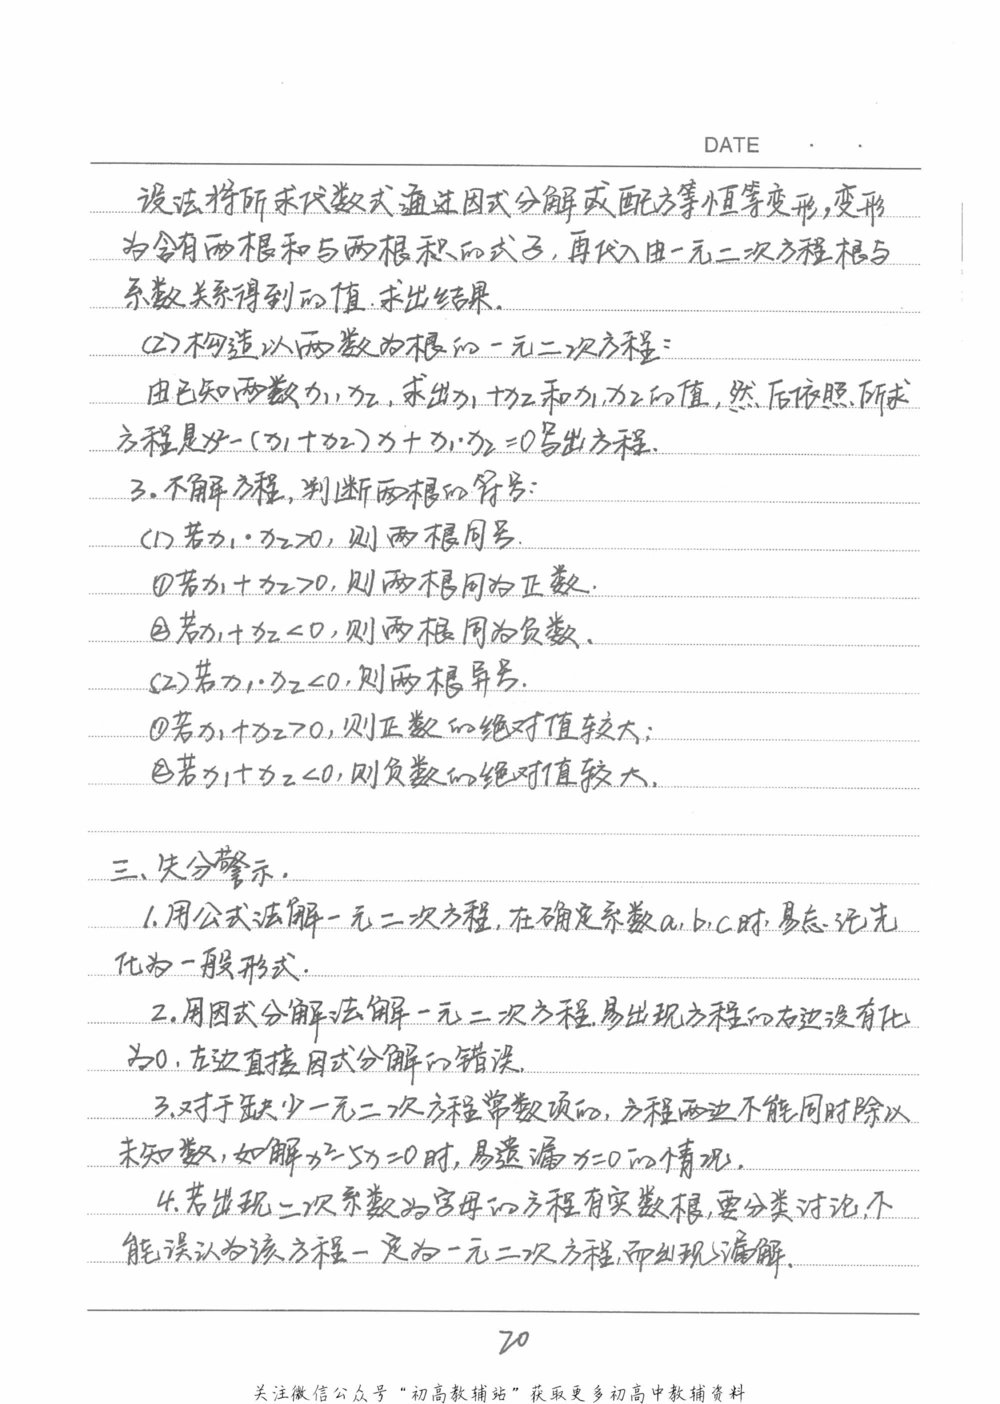 DATE · ·
设法将所求代数式通过因式分解或配方等恒等变形,变形
为含有两根和与两根积的式子,再代入由一元二次方程根与
系数关系得到的值.求出结果.
(2)构造以两数为根的一元二次方程:
由已知两数x₁,x₂,求出x₁+x₂和x₁,x₂的值,然后依照所求
方程是x²-(x₁+x₂)x+x₁·x₂=0写出方程.
3.不解方程,判断两根的符号:
(1)若x₁·x₂>0,则两根同号.
①若x₁+x₂>0,则两根同为正数.
②若x₁+x₂<0,则两根同为负数.
(2)若x₁·x₂<0,则两根异号.
①若x₁+x₂>0,则正数的绝对值较大;
②若x₁+x₂<0,则负数的绝对值较大.
三、失分警示.
1.用公式法解一元二次方程,在确定系数a,b,c时,易忘记先
化为一般形式.
2.用因式分解法解一元二次方程.易出现方程的右边没有化
为0,左边直接因式分解的错误.
3.对于缺少一元二次方程常数项的,方程两边不能同时除以
未知数,如解x²-5x=0时,易遗漏x=0的情况.
4.若出现二次系数为字母的方程有实数根,要分类讨论,不
能误认为该方程一定为一元二次方程,而出现漏解.
20
关注微信公众号“初高教辅站”获取更多初高中教辅资料